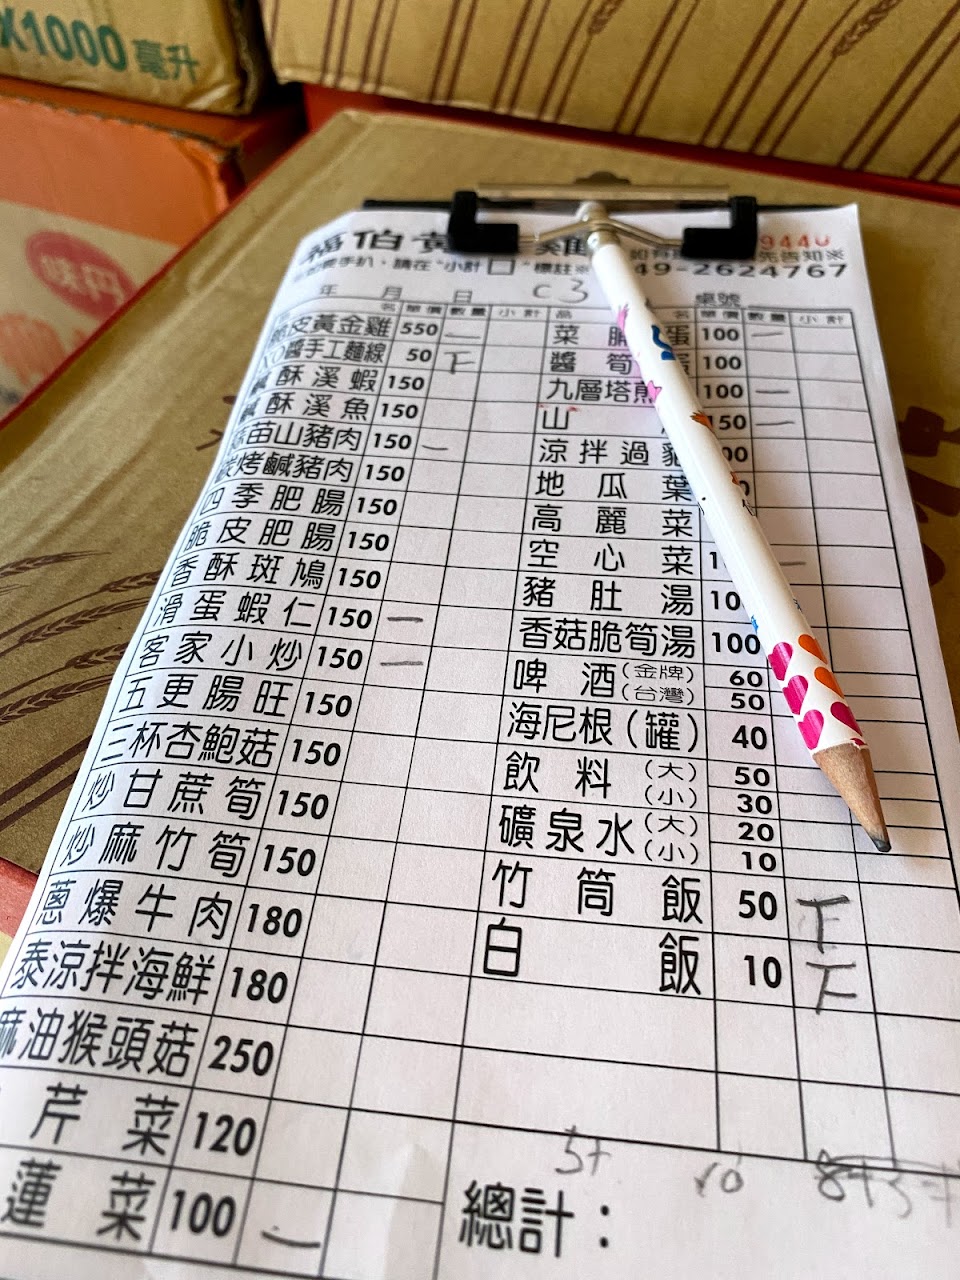 X1000毫升
味丹
福伯黃 雞
9440
手扒,請在"小計□"標註
先告知
49-2624767
年 月 日 C3 桌號
名 單價 數量 小計 品 名 單價 數量 小計
皮黃金雞 550 二 菜脯蛋 100 一
XO醬手工麵線 50 下 醬筍蛋 100
鹹酥溪蝦 150 九層塔煎 100 一
鹹酥溪魚 150 山 150 一
蒜苗山豬肉 150 一 涼拌過貓 100
碳烤鹹豬肉 150 地瓜葉
四季肥腸 150 高麗菜
脆皮肥腸 150 空心菜 一
香酥斑鳩 150 豬肚湯
滑蛋蝦仁 150 一 香菇脆筍湯 100
客家小炒 150 一 啤酒(金牌) 60
(台灣) 50
五更腸旺 150 海尼根(罐) 40
三杯杏鮑菇 150 飲料(大) 50
(小) 30
炒甘蔗筍 150 礦泉水(大) 20
(小) 10
炒麻竹筍 150 竹筒飯 50 下
蔥爆牛肉 180 白飯 10 下
泰涼拌海鮮 180
麻油猴頭菇 250
芹菜 120
蓮菜 100 一
5+ 10
總計: